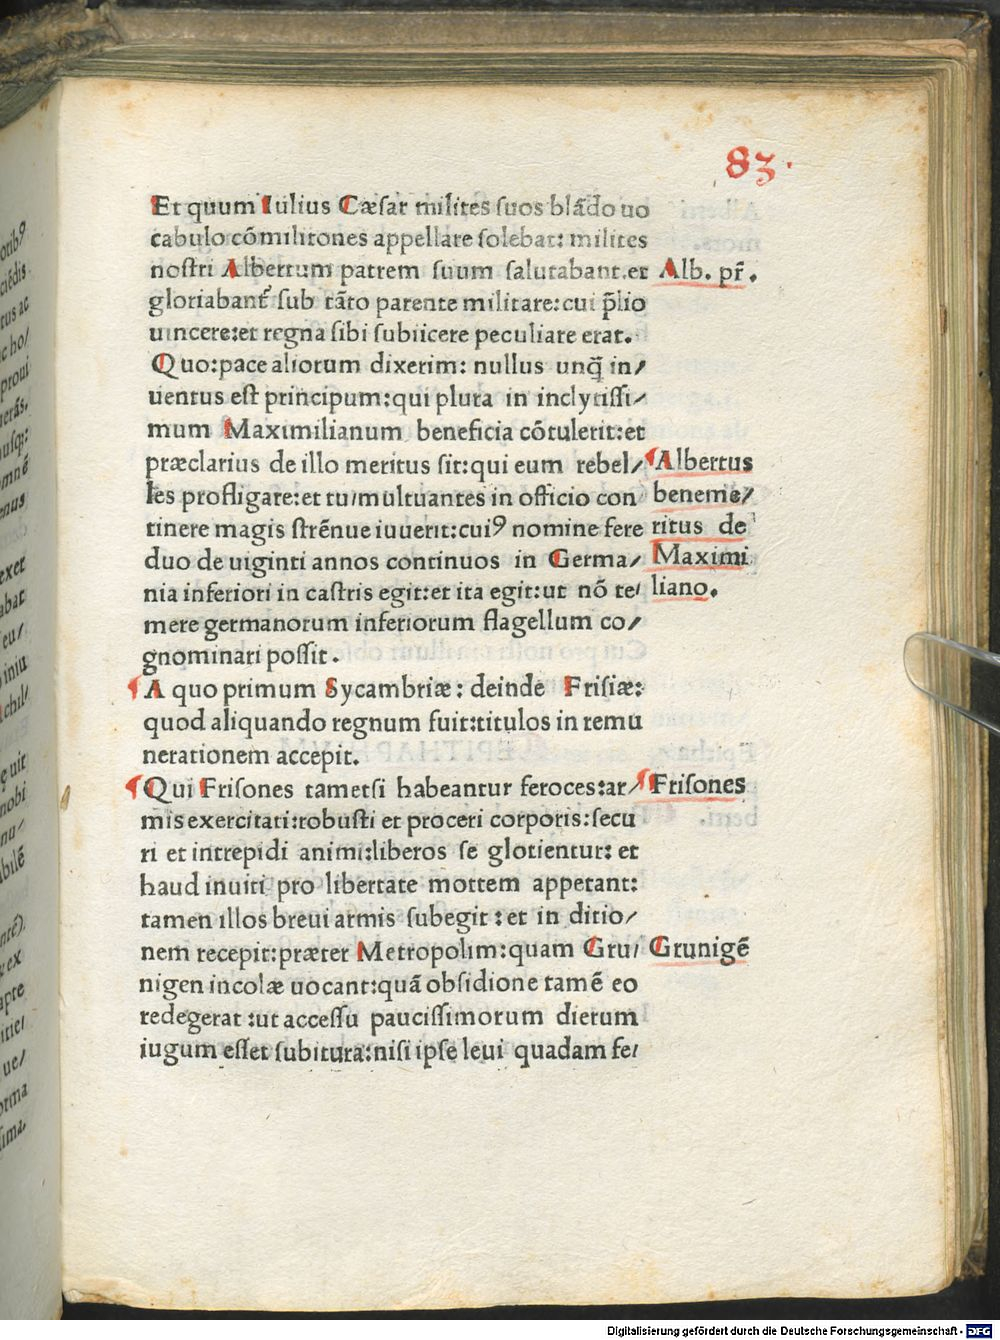 83.
Et quum Iulius Cæsar milites suos blādo uo
cabulo cōmilitones appellare solebat: milites
nostri Albertum patrem suum salutabant.et
Alb. pr̄.
gloriabant᷑ sub tāto parente militare:cui p̄lio
uincere:et regna sibi subiicere peculiare erat.
Quo:pace aliorum dixerim: nullus unq̄ in/
uentus est principum:qui plura in inclytissi/
mum Maximilianum beneficia cōtulerit:et
præclarius de illo meritus sit:qui eum rebel/
les profligare:et tumultuantes in officio con
tinere magis strēnue iuuerit:cuiꝰ nomine fere
duo de uiginti annos continuos in Germa/
nia inferiori in castris egit:et ita egit:ut nō te/
mere germanorum inferiorum flagellum co/
gnominari possit.
Albertus
beneme/
ritus de
Maximi
liano.
¶A quo primum Sycambriæ: deinde Frisiæ:
quod aliquando regnum fuit:titulos in remu
nerationem accepit.
¶Qui Frisones tametsi habeantur feroces:ar/
¶Frisones
mis exercitati:robusti et proceri corporis:secu
ri et intrepidi animi:liberos se glorientur: et
haud inuiti pro libertate mortem appetant:
tamen illos breui armis subegit: et in ditio/
nem recepit:præter Metropolim:quam Gru/
Grunigē
nigen incolæ uocant:quā obsidione tamē eo
redegerat:ut accessu paucissimorum dierum
iugum esset subitura:nisi ipse leui quadam fe/
Digitalisierung gefördert durch die Deutsche Forschungsgemeinschaft - DFG